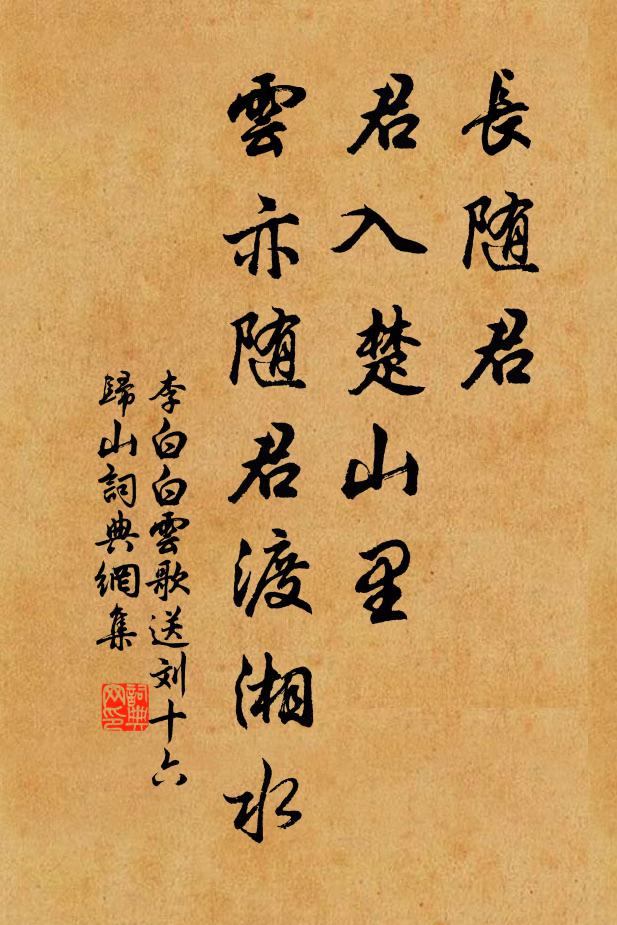 長随君
君入楚山里
雲亦随君渡湘水
李白白雲歌送刘十六
歸山詞典網集
詞典
网印